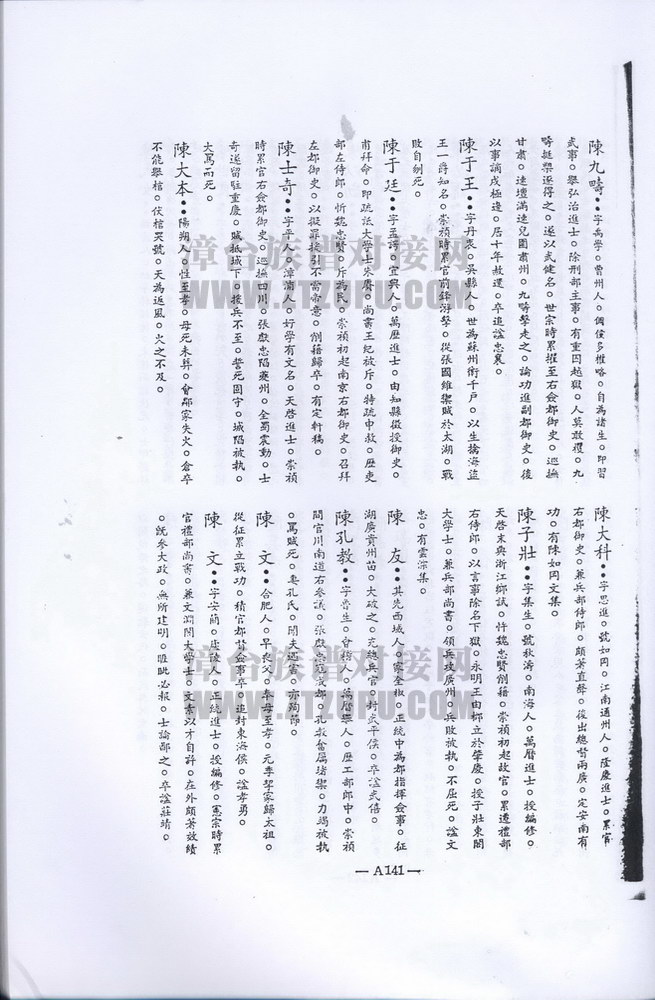 陳九疇：字禹學。曹州人。倜儻多權略。自為諸生。即習
武事。舉弘治進士。除刑部主事。有重囚越獄。人莫敢攖。九
疇挺槊逐得之。遂以武健名。世宗時累擢至右僉都御史。巡撫
甘肅。速壇滿速兒圍肅州。九疇擊走之。論功進副都御史。後
以事謫戍極邊。居十年赦還。卒追謚忠襄。
陳于王：字丹衷。吳縣人。世為蘇州衛千戶。以生擒海盜
王一爵知名。崇禎時累官前鋒游擊。從張國維禦賊於太湖。戰
敗自刎死。
陳于廷：字孟諤。宜興人。萬歷進士。由知縣徵授御史。
甫拜命。即疏詆大學士朱賡。尚書王紀被斥。特疏申救。歷吏
部左侍郎。忤魏忠賢。斥為民。崇禎初起南京右都御史。召拜
左都御史。以擬罪援引不當帝意。削籍歸卒。有定軒稿。
陳士奇：字平人。漳浦人。好學有文名。天啓進士。崇禎
時累官右僉都御史。巡撫四川。張獻忠陷夔州。全蜀震動。士
奇遂留駐重慶。賊抵城下。援兵不至。誓死固守。城陷被執。
大罵而死。
陳大本：陽朔人。性至孝。母死未葬。會鄰家失火。倉卒
不能舉棺。伏棺哭號。天為返風。火之不及。
陳大科：字思進。號如岡。江南通州人。隆慶進士。累官
右都御史。兼兵部侍郎。頗著直聲。後出總督兩廣。定安南有
功。有陳如岡文集。
陳子壯：字集生。號秋濤。南海人。萬曆進士。授編修。
天啓末與浙江鄉試。忤魏忠賢削籍。崇禎初起故官。累遷禮部
右侍郎。以言事除名下獄。永明王由榔立於肇慶。授子壯東閣
大學士。兼兵部尚書。領兵攻廣州。兵敗被執。不屈死。謚文
忠。有雲淙集。
陳　友：其先西域人。家全椒。正統中為都指揮僉事。征
湖廣貴州苗。大破之。充總兵官。封武平侯。卒謚武僖。
陳孔教：字魯生。會稽人。萬曆舉人。歷工部郎中。崇禎
間官川南道右參議。張獻忠寇成都。孔教奮屬堵禦。力竭被執
。罵賊死。妻孔氏。聞夫遇害。亦殉節。
陳　文：合肥人。早喪父。奉母至孝。元季挈家歸太祖。
從征累立戰功。積官都督僉事卒。追封東海侯。謚孝勇。
陳　文：字安簡。廬陵人。正統進士。授編修。憲宗時累
官禮部尚書。兼文淵閣大學士。文素以才自許。在外頗著政績
。既參大政。無所建明。睚眦必報。士論鄙之。卒謚莊靖。
— A 141 —
漳台族谱对接网
WWW.ZTZUPU.COM
漳台族谱对接网
WWW.ZTZUPU.COM